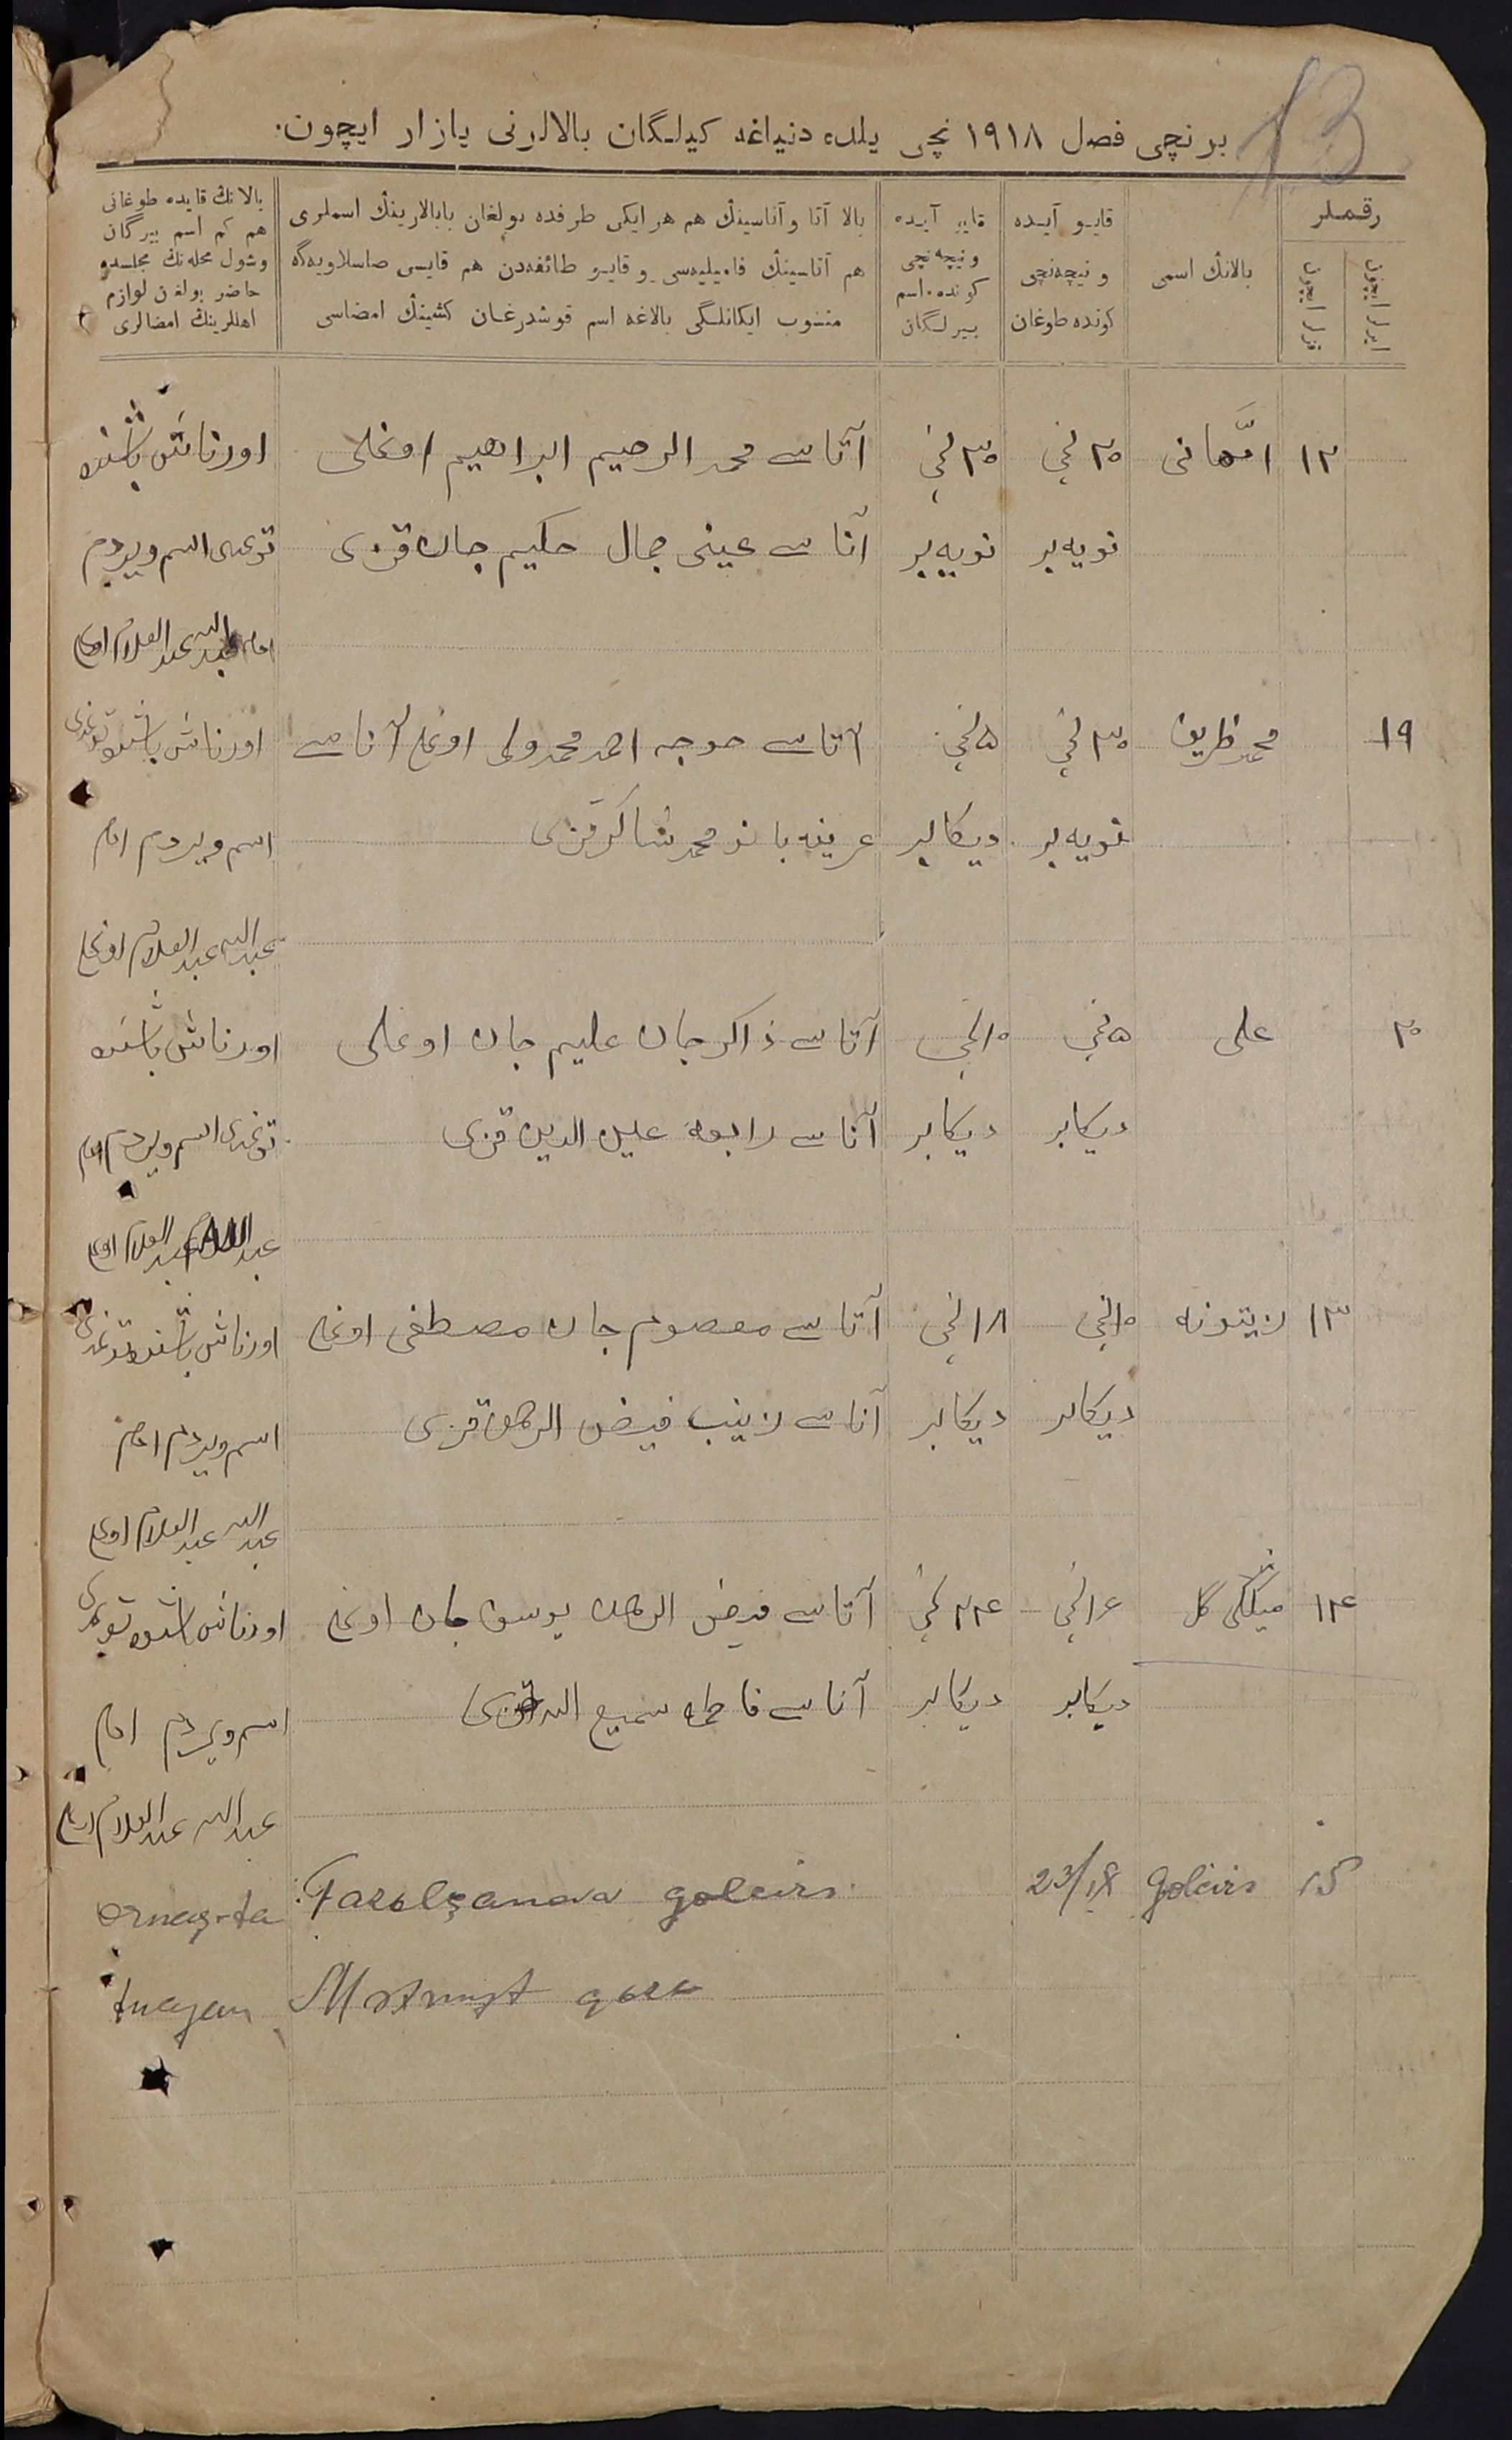 13
برنچی فصل ۱۹۱۸ نچی یلده دنیاغه کیلگان بالالرنی یازار ایچون.
رقملر
ایرلر ایچون
قزلر ایچون
بالانڭ اسمی
قایو آیده
و نیچه‌نچی
کونده طوغان
قایو آیده
و نیچه‌نچی
کونده اسم
بیرلگان
بالا آتا و آناسینڭ هم هر ایکی طرفده بولغان بابالارینڭ اسملری
هم آتاسینڭ فامیلیه‌سی و قایو طائفه‌دن هم قایسی صاصلاویه‌گه
منسوب ایکانلگی بالاغه اسم قوشدرغان کشینڭ امضاسی
بالانڭ قایده طوغانی
هم کم اسم بیرگان
وشول محله‌نڭ مجلسده
حاضر بولغن لوازم
اهللرینڭ امضالری
۱۲ امّهانی ۲۰ نچی ۳۰ نچی آتاسی محمد الرحیم ابراهیم اوغلی اورناش باشنده
نویه‌بر نویه‌بر آناسی عینی جمال حکیم جان قزی توغدی اسم ویردم
امام عبدالله عبدالعلام اوغلی
۱۹ محمد ظریف ۳۰ نچی ۵ نچی آتاسی خوجه احمد محمد ولی اوغلی آناسی اورناش باشنده توغدی
نویه‌بر دیکابر بانو محمد شاکر قزی اسم ویردم امام
عبدالله عبدالعلام اوغلی
۲۰ علی ۵ نچی ۱۰ نچی آتاسی ذاکر جان علیم جان اوغلی اورناش باشنده
دیکابر دیکابر آناسی رابعه علیم الدین قزی توغدی اسم ویردم امام
عبدالله عبدالعلام اوغلی
۱۳ زیتونه ۱۰ نچی ۱۸ نچی آتاسی معصوم جان مصطفی اوغلی اورناش باشنده توغدی
دیکابر دیکابر آناسی زینب فیض الرحمن قزی اسم ویردم امام
عبدالله عبدالعلام اوغلی
۱۴ میڭلی گل ۱۶ نچی ۲۴ نچی آتاسی فیض الرحمن یوسف جان اوغلی اورناش باشنده توغدی
دیکابر دیکابر آناسی فاطمه سمیع الله قزی اسم ویردم امام
عبدالله عبدالعلام اوغلی
15 Golcirə 23/IX Fazəlçanova golcirə ornaş-ta
tuagan